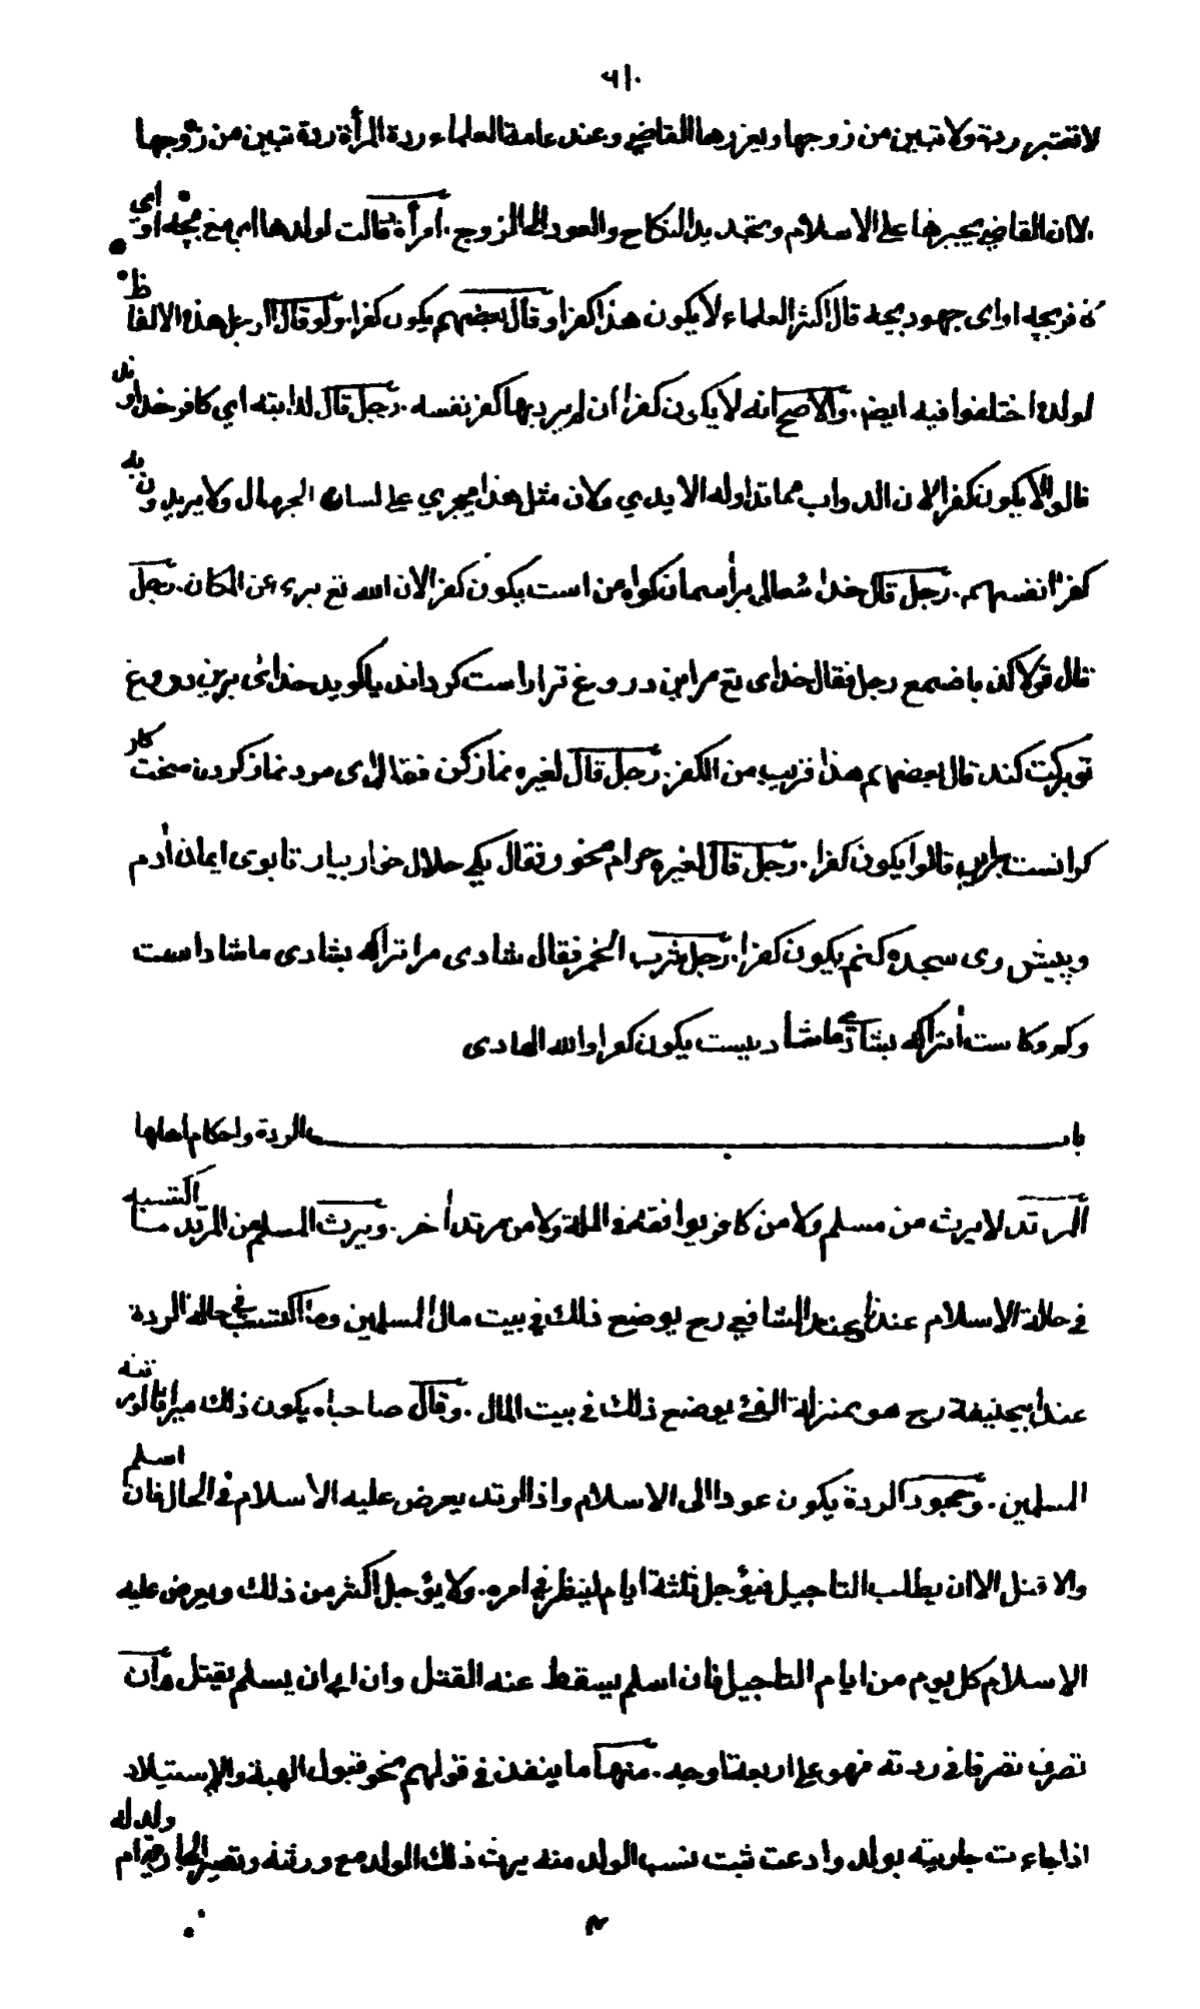 ٦١٠
لا تعتبر ردة ولا تبين من زوجها ويعزرها القاضي وعند عامة العلماء ردة المرأة ردة تبين من زوجها
الا ان القاضي يجبرها على الاسلام وتجديد النكاح والعود الى الزوج. امرأة قالت لولدها اي مغ بچه او اي
كافر بچه او اي جهود بچه قال اكثر العلماء لا يكون هذا كفرا وقال بعضهم يكون كفرا. ولو قال الرجل هذه الالفاظ
لولده اختلفوا فيه ايضا. والاصح انه لا يكون كفرا ان لم يرد بها كفر نفسه. رجل قال لدابته اي كافر خداوند
قالوا لا يكون كفرا لان الدواب مما تداوله الايدي ولان مثل هذا يجري على لسان الجهال ولا يريدون به
كفر انفسهم. رجل قال خداى تعالى بر اسمان كواه من است يكون كفرا لان الله تع برىء عن المكان. رجل
قال قولا كذبا ضمع رجل فقال خداى تع مر اين دروغ ترا راست كرداند يا كويد خداى برين دروغ
تو بركت كند قال بعضهم هذا قريب من الكفر. رجل قال لغيره نماز كن فقال اى مرد نماز كردن سخت كار
كرانست قالوا يكون كفرا. رجل قال لغيره حرام مخور فقال يكي حلال خوار بيار تا بوى ايمان آدم
وپيش وى سجده كنم يكون كفرا. رجل شرب الخمر فقال شادى مر انراكه بشادى ما شاد است
وكم وكاست انراكه بشادى ما شاد نيست يكون كفرا والله الهادى
باب الردة واحكام اهلها
المرتد لا يرث من مسلم ولا من كافر يوافقه في الملة ولا من مرتد آخر. ويرث المسلم من المرتد ما اكتسبه
في حالة الاسلام عندنا وعند الشافعي رح يوضع ذلك في بيت مال المسلمين وما اكتسب في حالة الردة
عند ابيحنيفة رح هو بمنزلة الفئ يوضع ذلك في بيت المال. وقال صاحباه يكون ذلك ميراثا لورثته
المسلمين. وجحود الردة يكون عودا الى الاسلام واذا ارتد يعرض عليه الاسلام في الحال فان اسلم
والا قتل الا ان يطلب التاجيل فيؤجل ثلثة ايام لينظر في امره. ولا يؤجل اكثر من ذلك ويعرض عليه
الاسلام كل يوم من ايام التاجيل فان اسلم يسقط عنه القتل وان ابى ان يسلم يقتل وان
تصرف تصرفا في ردته فهو على اربعة اوجه. منها ما ينفذ في قولهم نحو قبول الهبة والاستيلاد
اذا جاءت جاريته بولد وادعت ثبت نسب الولد منه يرث ذلك الولد مع ورثته وتصير الجارية ام ولد له